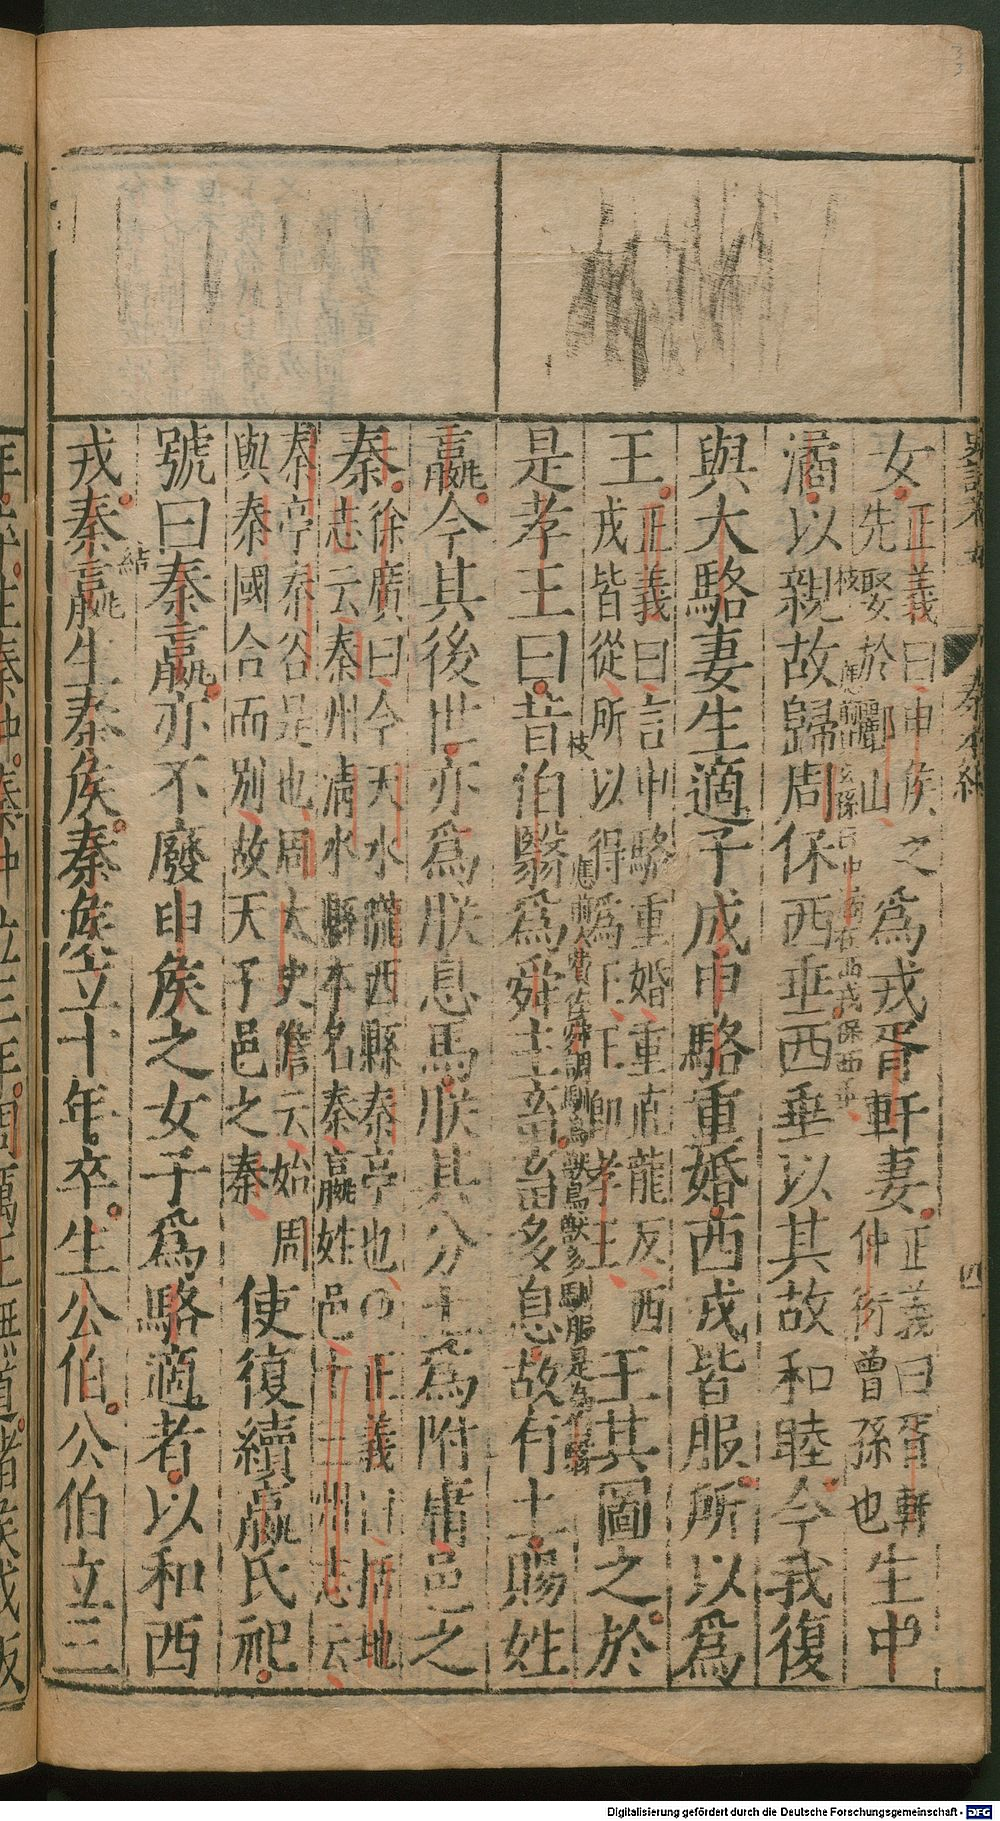 33
秦本紀
四
女正義曰申侯之先娶於酈山爲戎胥軒妻正義曰胥軒仲衍曾孫也生中
潏以親故歸周保西垂西垂以其故和睦今我復
與大駱妻生適子成申駱重婚西戎皆服所以爲
王正義曰言申駱重婚重直龍反西戎皆從所以得爲王王即孝王王其圖之於
是孝王曰昔伯翳爲舜主畜畜多息故有土賜姓
嬴今其後世亦爲朕息馬朕其分土爲附庸邑之
秦徐廣曰今天水隴西縣秦亭也○正義曰括地志云秦州清水縣本名秦嬴姓邑十三州志云
秦亭秦谷是也周太史儋云始周與秦國合而別故天子邑之秦使復續嬴氏祀
號曰秦嬴亦不廢申侯之女子爲駱適者以和西
戎秦嬴生秦侯秦侯立十年卒生公伯公伯立三
枝
枝
結
Digitalisierung gefördert durch die Deutsche Forschungsgemeinschaft - DFG